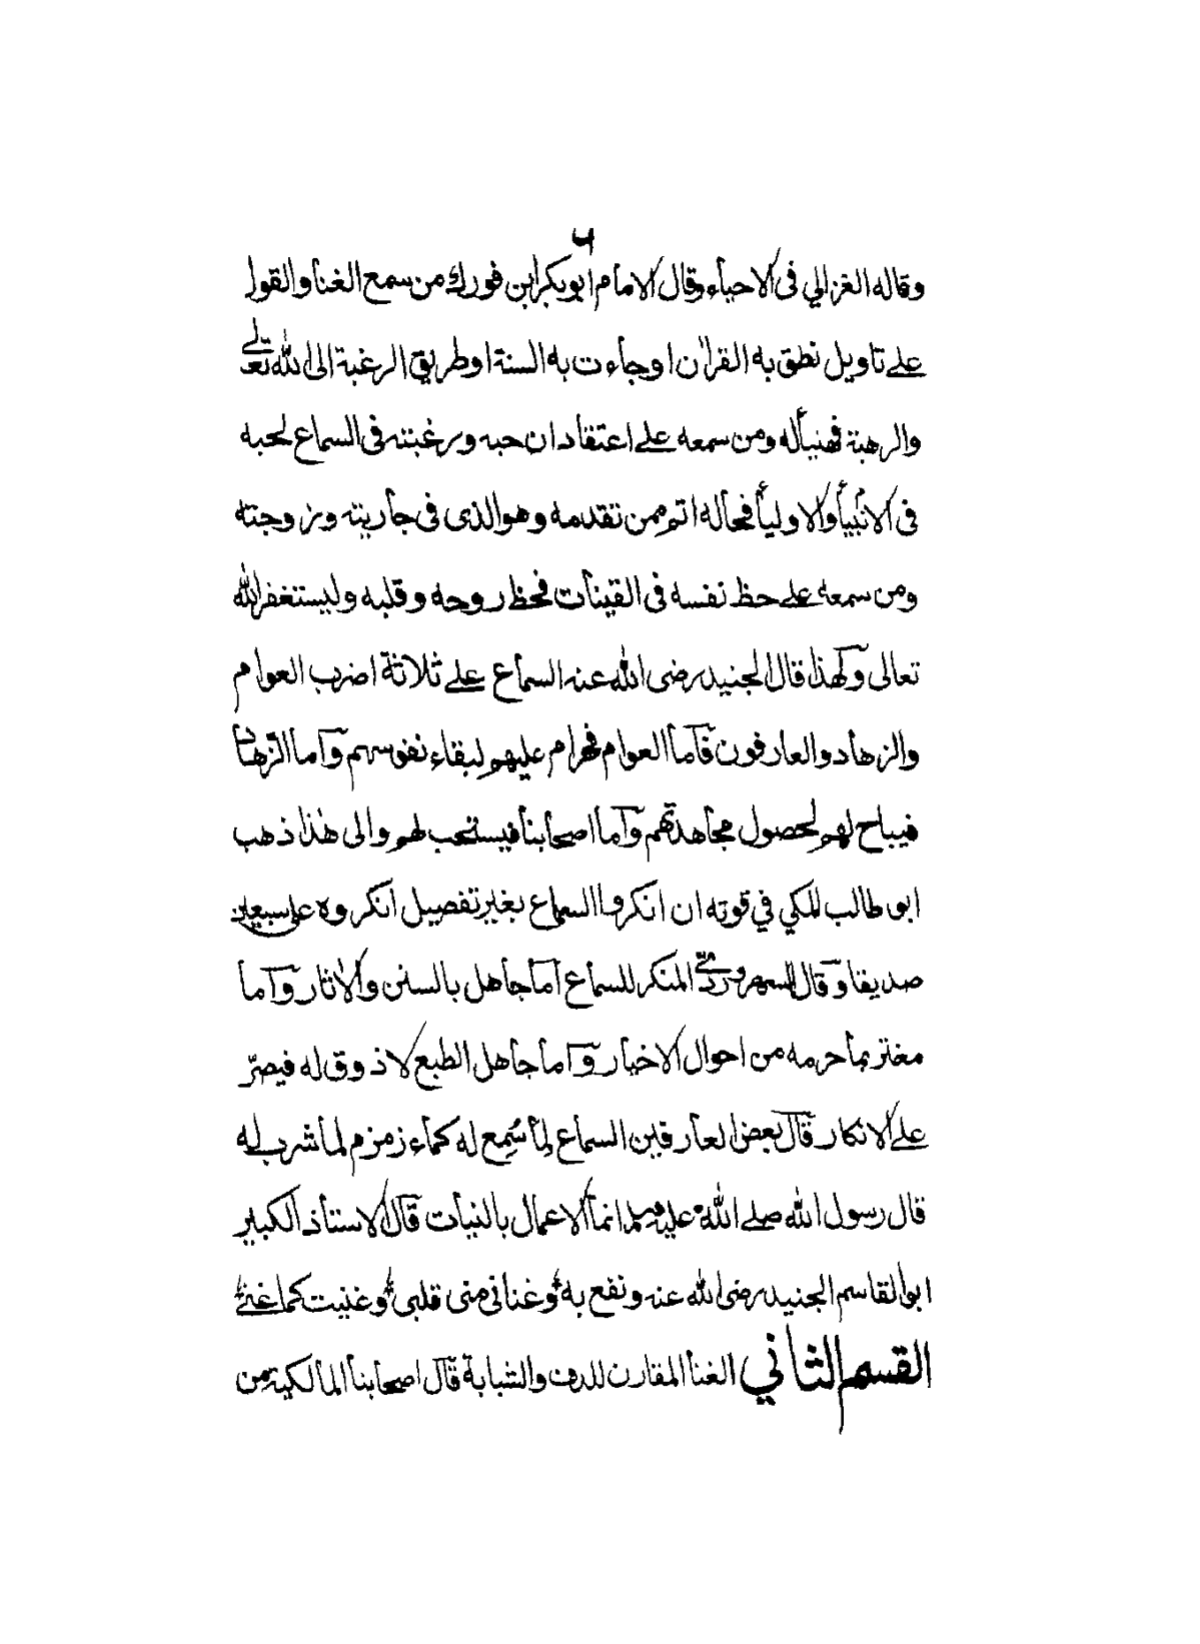 ٦
وقاله الغزالي فى الاحياء وقال الامام ابوبكر ابن فورك من سمع الغنأ والقول
على تاويل نطق به القرأن او جاءت به السنة او طريق الرغبة الى الله تعالى
والرهبة فهنيأله ومن سمعه على اعتقاد ان حبه ورغبته فى السماع لحبه
فى الانبيأ والاوليأ فحاله اتم ممن تقدمه وهو الذى فى جاريته وزوجته
ومن سمعه على حظ نفسه فى القينات فحظ روحه وقلبه وليستغفر الله
تعالى ولهذا قال الجنيد رضى الله عنه السماع على ثلاثة اضرب العوام
والزهاد والعارفون فأما العوام فحرام عليهم لبقاء نفوسهم وأما الزهاد
فيباح لهم لحصول مجاهدتهم وأما اصحابنا فيستحب لهم والى هذا ذهب
ابو طالب المكي في قوته ان انكروا السماع بغير تفصيل انكروه على سبعين
صديقا وقال السهروردى المنكر للسماع أما جاهل بالسنن والأثار وأما
مغتر بما حرمه من احوال الاخيار وأما جاهل الطبع لا ذوق له فيصرّ
على الانكار قال بعض العارفين السماع لِمأ سُمِع له كماء زمزم لما شرب له
قال رسول الله صلى الله عليه وسلم انمأ الاعمال بالنيات قال الاستاذ الكبير
ابو القاسم الجنيد رضى الله عنه ونفع به وغنانى منى قلبى وغنيت كما غنى
القسم الثاني الغنأ المقارن للدف والشبابة قال اصحابنا المالكية من